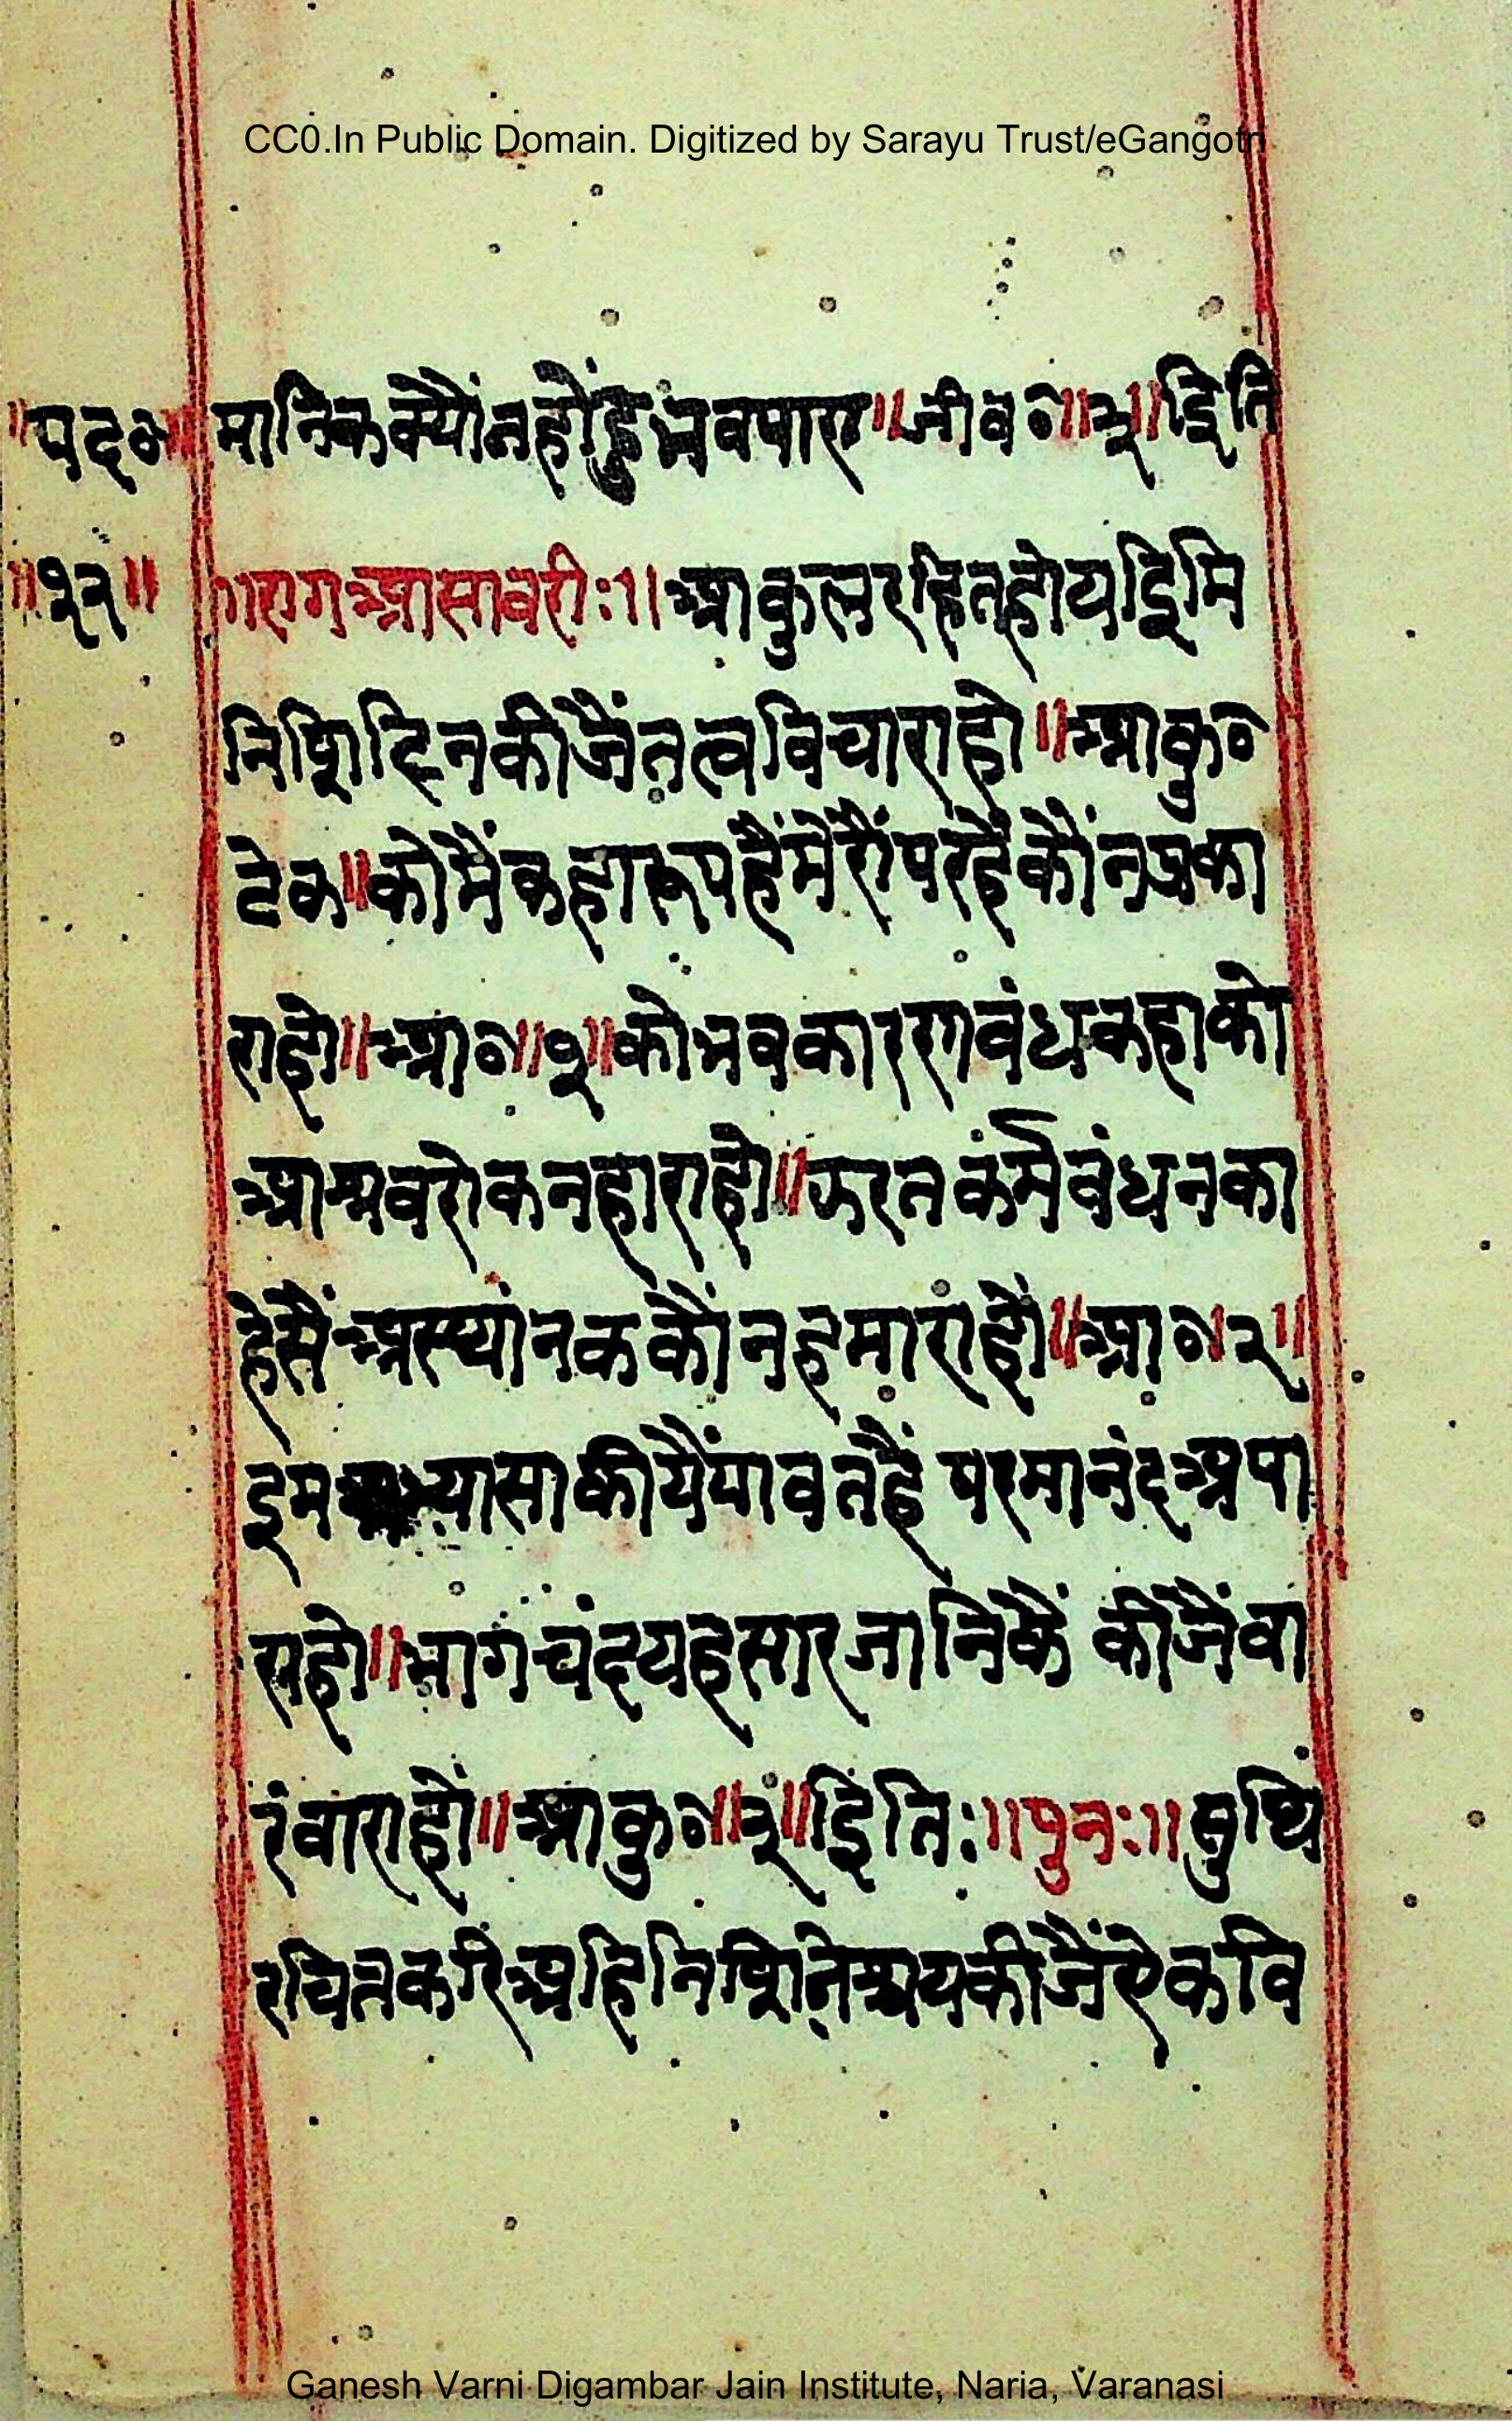 CC0.In Public Domain. Digitized by Sarayu Trust/eGangotri
॥पद०॥ मानिकक्यौंनहोंहुभवपारा॥जीव०॥३॥इिति
॥१२॥ ॥रागआसावरीः॥आकुलरहितहोयइिमि
निशिदिनकीजैंतत्वविचाराहो॥आकु०
टेक॥कोमैंकहारूपहैंमेरौंपरहैंकौंनप्रका
राहो॥आ०॥१॥कोभवकारणवंधकहाको
आश्रवरोकनहाराहो॥ऊरतकंर्मवंधनका
हेसैंअस्थांनककौंनहमाराहों॥आ०॥२॥
इमअभ्यासाकीयैंपावतहैं परमानंदअपा
राहो॥भागचंदयहसारजानिकैं कीजैंवा
रंवाराहों॥आकु०॥३॥इितिः॥पुनः॥सुथि
रचितकरिअहिनिशिनिश्चयकीजैंऐकवि
Ganesh Varni Digambar Jain Institute, Naria, Varanasi